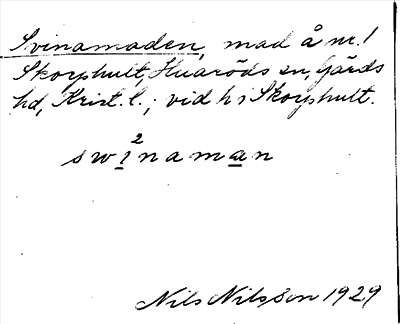 Svinamaden, mad å nr. 1
Skorphult, Huaröds sn, Gärds
hd, Krist. l.; vid h 1 Skorphult.
swi²naman
Nils Nilsson 1929